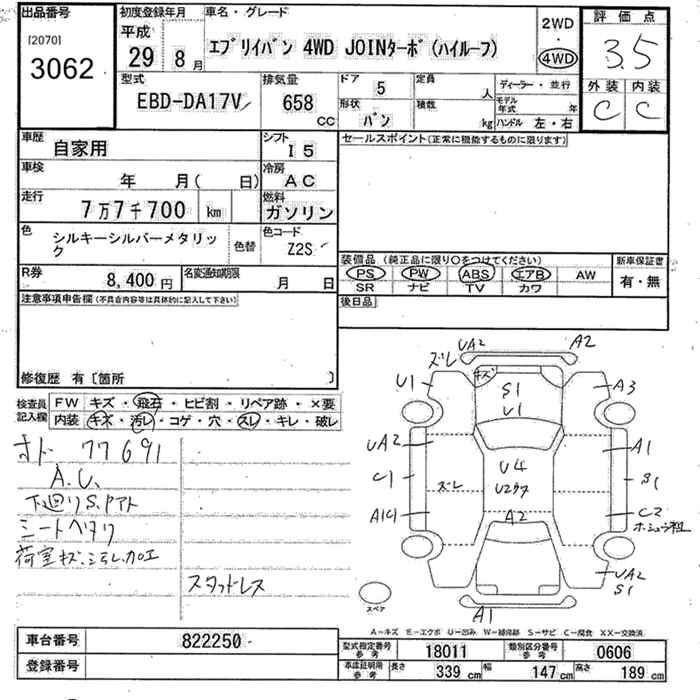 出品番号
[2070]
3062
初度登録年月
平成
29 8月
車名・グレード
エブリイバン 4WD JOINターボ(ハイルーフ)
2WD
・
4WD
評価点
3.5
外装 内装
C C
型式
EBD-DA17V
排気量
658 CC
ドア 5
形状 バン
定員 人
積載 kg
ディーラー・並行
モデル年式 年
ハンドル 左・右
車歴 自家用
シフト I5
車検 年 月( 日)
冷房 AC
走行 7万7千700 km
燃料 ガソリン
色 シルキーシルバーメタリック
色替
色コード Z2S
R券 8,400円
名変通知期限 月 日
セールスポイント(正常に機能するものに限ります)
装備品 (純正品に限り○をつけてください)
PS PW ABS エアB AW
SR ナビ TV カワ
新車保証書
有・無
後日品
注意事項申告欄(不具合内容等は具体的に記入して下さい)
修復歴 有〔箇所 〕
検査員記入欄
FW キズ・飛石・ヒビ割・リペア跡・×要
内装 キズ・汚レ・コゲ・穴・スレ・キレ・破レ
オド 77691
A.U.
下廻りS.Pアト
シートヘタリ
荷室キズ.シミ.カエ
スタッドレス
UA2 A2
ズレ キズ
U1 S1 A3
U1
UA2 A1
U4
C1 ズレ U2 S1
A14 A2 C2
UA2
S1
A1
スペア
A-キズ E-エクボ U-凹み W-補修跡 S-サビ C-腐食 XX-交換済
車台番号 822250
登録番号
型式指定番号 参考 18011
類別区分番号 参考 0606
車庫証明用 参考 長さ 339cm 幅 147cm 高さ 189cm